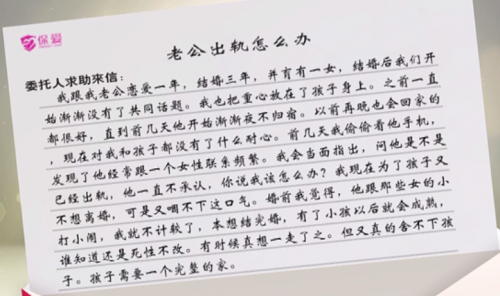 保爱
老公出轨怎么办
委托人求助來信：
我跟我老公恋爱一年，结婚三年，并育有一女，结婚后我们开
始渐渐没有了共同话题。我也把重心放在了孩子身上。之前一直
都很好，直到前几天他开始渐渐夜不归宿。以前再晚也会回家的
，现在对我和孩子都没有了什么耐心。前几天我偷偷看他手机，
发现了他经常跟一个女性联系频繁。我会当面指出，问他是不是
已经出轨，他一直不承认，你说我该怎么办？我现在为了孩子又
不想离婚，可是又咽不下这口气。婚前我觉得，他跟那些女的小
打小闹，我就不计较了，本想结完婚，有了小孩以后就会成熟，
谁知道还是死性不改。有时候真想一走了之。但又真的舍不下孩
子。孩子需要一个完整的家。